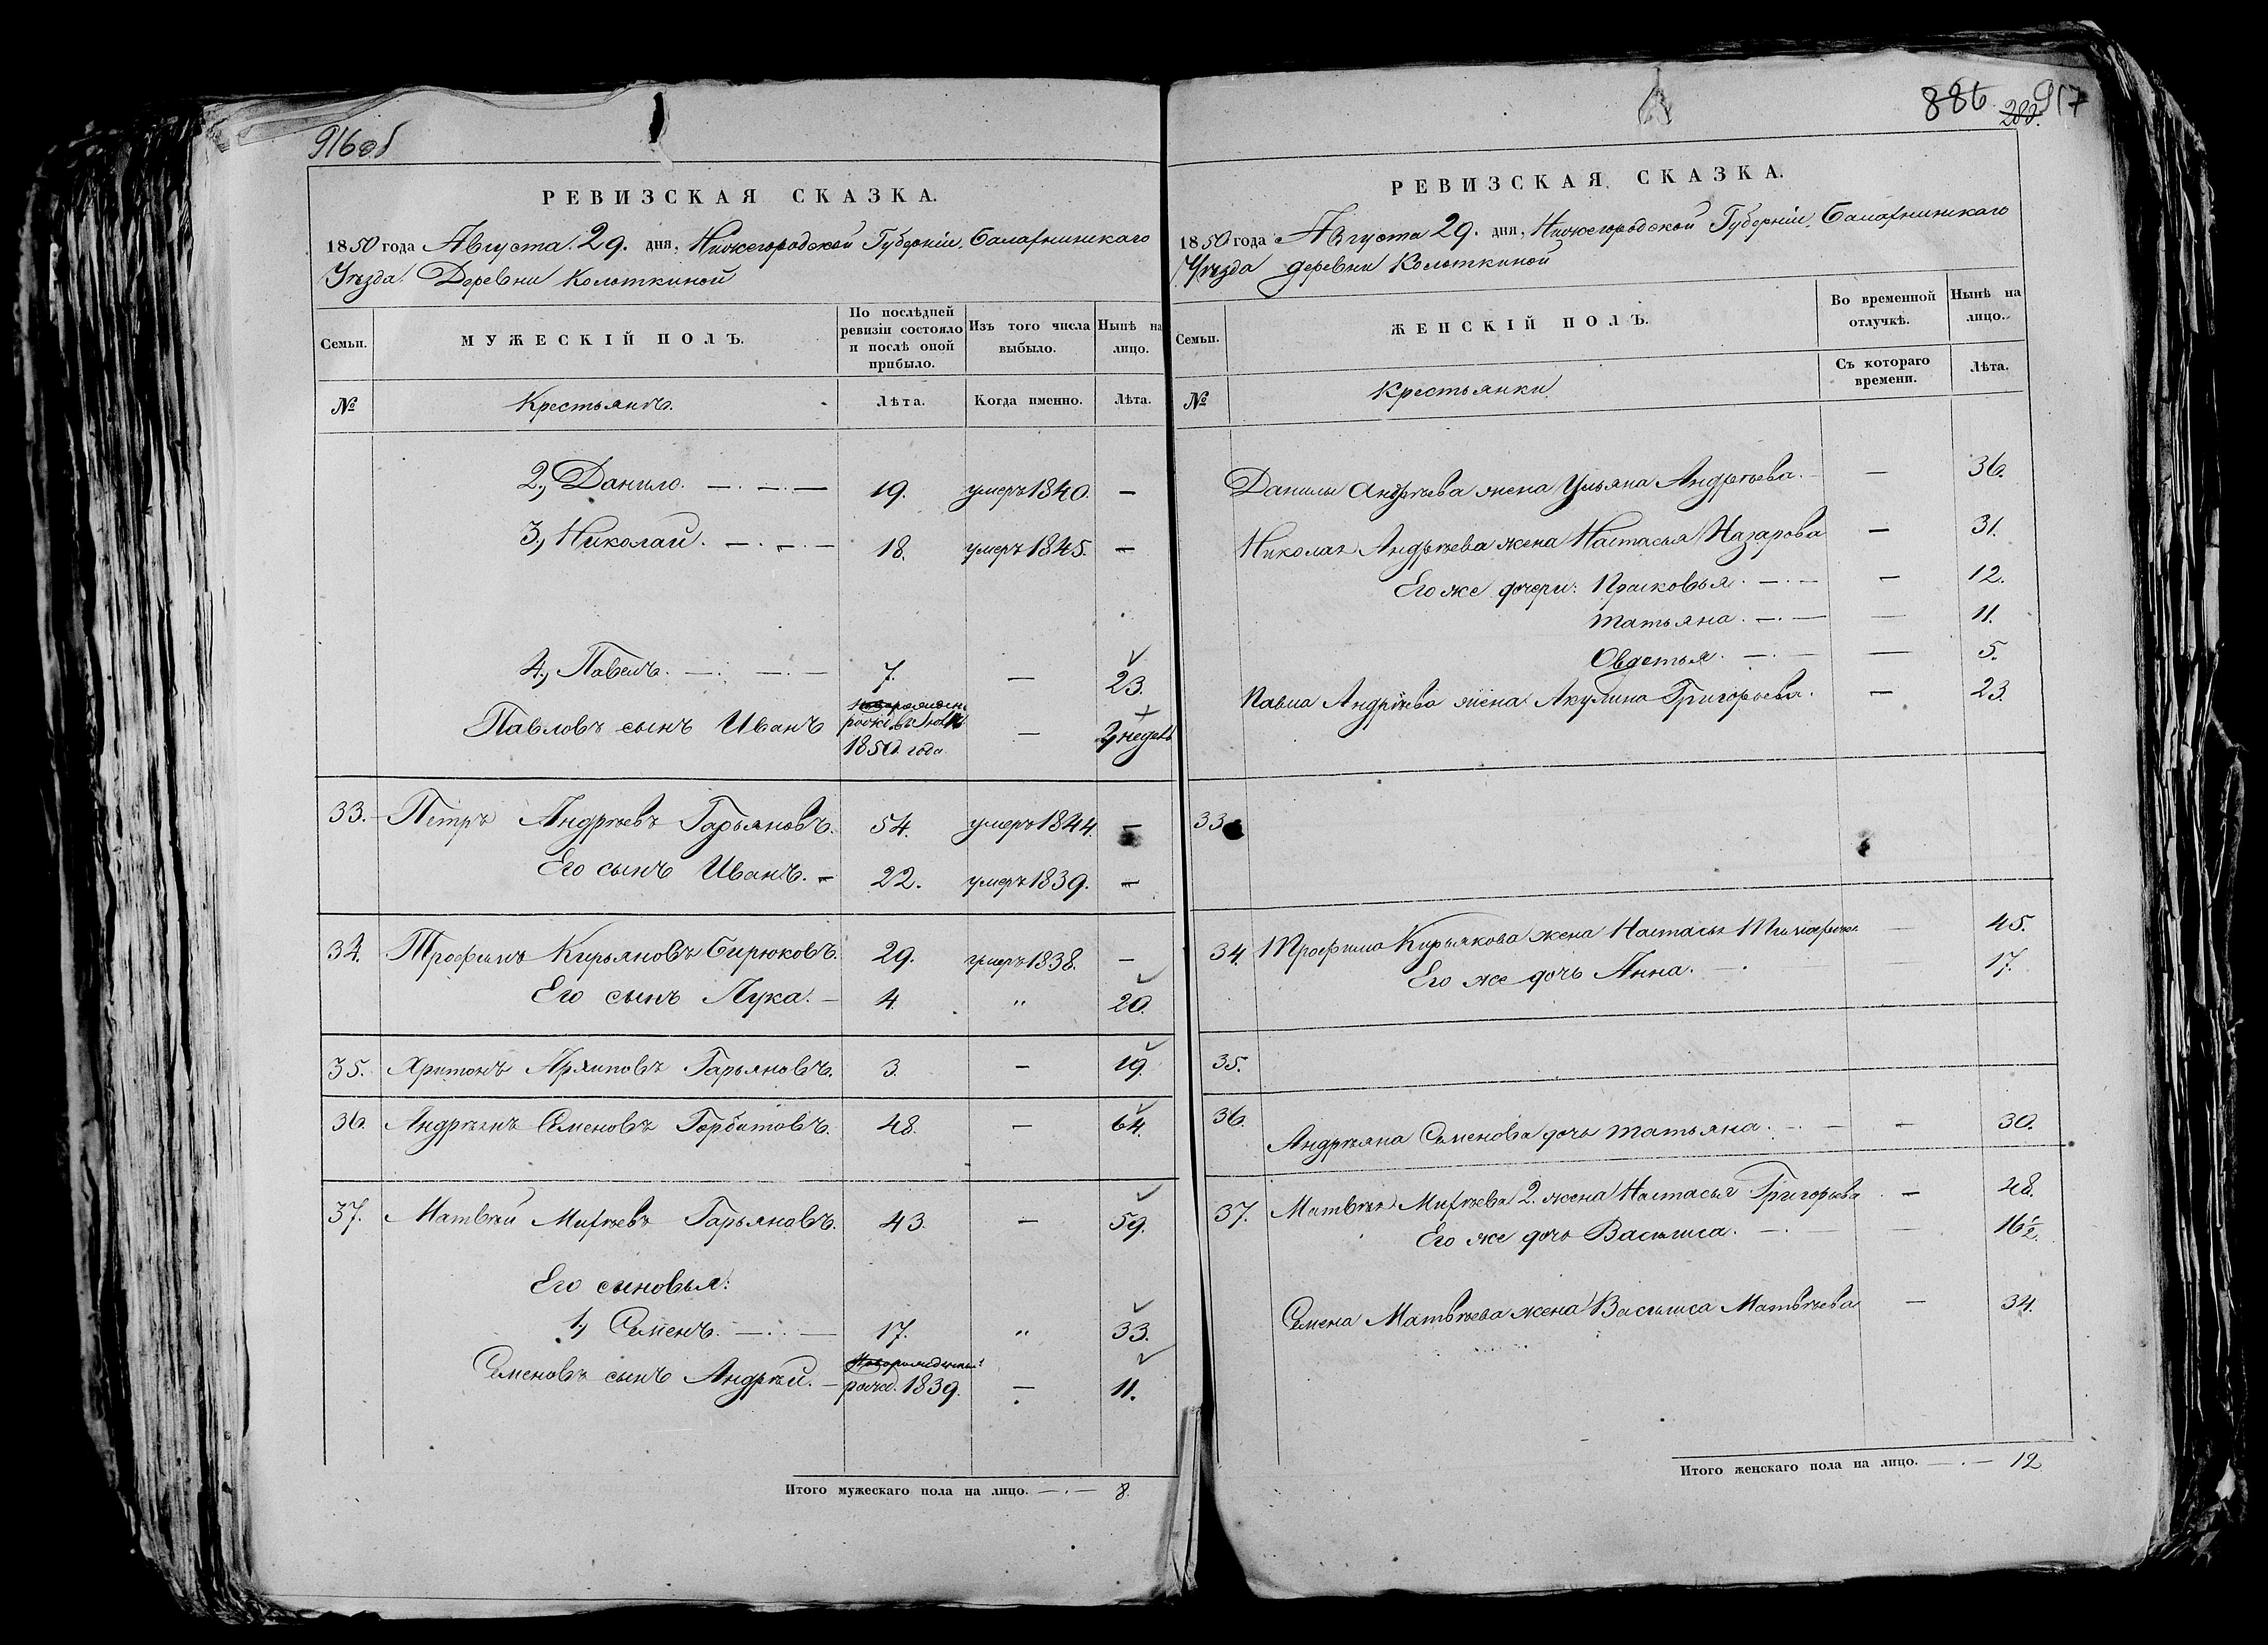 916об
РЕВИЗСКАЯ СКАЗКА.
1850 года Августа 29. дня, Нижегородской Губерніи, Балахнинскаго
Уѣзда Деревни Колоткиной
Семьи.
МУЖЕСКІЙ ПОЛЪ.
По послѣдней ревизіи состояло и послѣ оной прибыло.
Изъ того числа выбыло.
Нынѣ на лицо.
№
Крестьянъ.
Лѣта.
Когда именно.
Лѣта.
2, Данило. 19. умеръ 1840. —
3, Николай. 18. умеръ 1845. —
4, Павелъ. 7. — 23.
Павловъ сынъ Иванъ 1850 года — недель
33. Петръ Андрѣевъ Гарьяновъ. 54. умеръ 1844. —
Его сынъ Иванъ. 22. умеръ 1839. —
34. Трофимъ Кирьяновъ Бирюковъ. 29. умеръ 1838. —
Его сынъ Лука. 4. " 20.
35. Харитонъ Архиповъ Гарьяновъ. 3. — 19.
36. Андреянъ Семеновъ Горбатовъ. 48. — 64.
37. Матвѣй Михѣевъ Гарьяновъ. 43. — 59.
Его сыновья:
1, Семенъ. 17. " 33.
Семеновъ сынъ Андрѣй. — рожд. 1839. — 11.
Итого мужескаго пола на лицо. 8.
886. 917
РЕВИЗСКАЯ СКАЗКА.
1850 года Августа 29. дня, Нижегородской Губерніи, Балахнинскаго
Уѣзда деревни Колоткиной
Семьи.
ЖЕНСКІЙ ПОЛЪ.
Во временной отлучкѣ.
Нынѣ на лицо.
Съ котораго времени.
Лѣта.
№
Крестьянки
Данилы Андрѣева жена Ульяна Андрѣева. — 36.
Николая Андрѣева жена Настасья Назарова — 31.
Его же дочери: Прасковья. — 12.
Татьяна. — 11.
Овдотья. — 5.
Павла Андрѣева жена Акулина Григорьева. — 23.
33.
34. Трофима Кирьякова жена Настасья — 45.
Его же дочь Анна. 17.
35.
36. Андреяна Семенова дочь Татьяна. — 30.
37. Матвѣя Михѣева 2. жена Настасья Григорьева — 48.
Его же дочь Василиса. — 16½.
Семена Матвѣева жена Василиса Матвѣева — 34.
Итого женскаго пола на лицо. 12